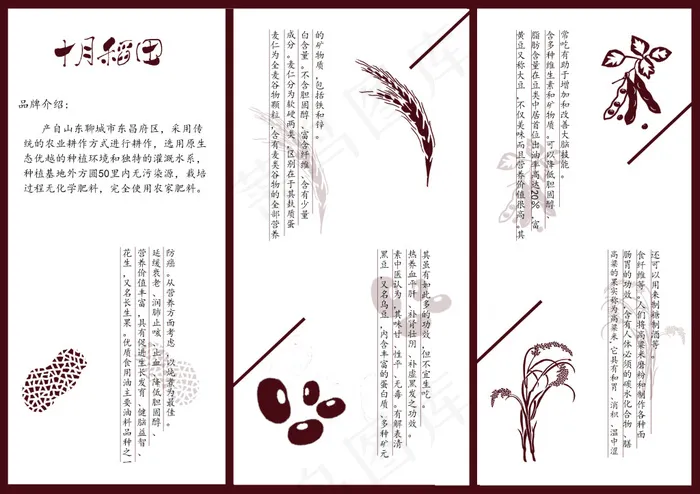 十月稻田
品牌介绍：
产自山东聊城市东昌府区，采用传
统的农业耕作方式进行耕作，选用原生
态优越的种植环境和独特的灌溉水系，
种植基地外方圆50里内无污染源，栽培
过程无化学肥料，完全使用农家肥料。
花生，又名长生果。优质食用油主要油料品种之一
营养价值丰富，具有促进生长发育、健脑益智、
延缓衰老、润肺止咳、止血、降低胆固醇、
防癌。从营养方面考虑，以炖煮为最佳。
麦仁为全麦谷物颗粒，含有麦类谷物的全部营养
成分。麦仁分为软硬两类，区别在于其麸质蛋
白含量。不含胆固醇，富含纤维、含有少量
的矿物质，包括铁和锌。
黑豆，又名乌豆，内含丰富的蛋白质、多种矿元
素中医认为，其味甘、性平、无毒。有解表清
热养血平肝、补肾壮阴、补虚黑发之功效。
其虽有如此多的功效，但不宜生吃。
黄豆又称大豆，不仅美味而且营养价值很高。其
脂肪含量在豆类中居首位出油率高达20%，富
含多种维生素和矿物质。可以降低胆固醇、
常吃有助于增加和改善大脑技能。
高粱的果实称为高粱米，它具有和胃、消积、温中涩
肠胃的功效，含有人体必须的碳水化合物、膳
食纤维等。人们将高粱米磨粉和制作各种面
还可以用来制糖制酒等。